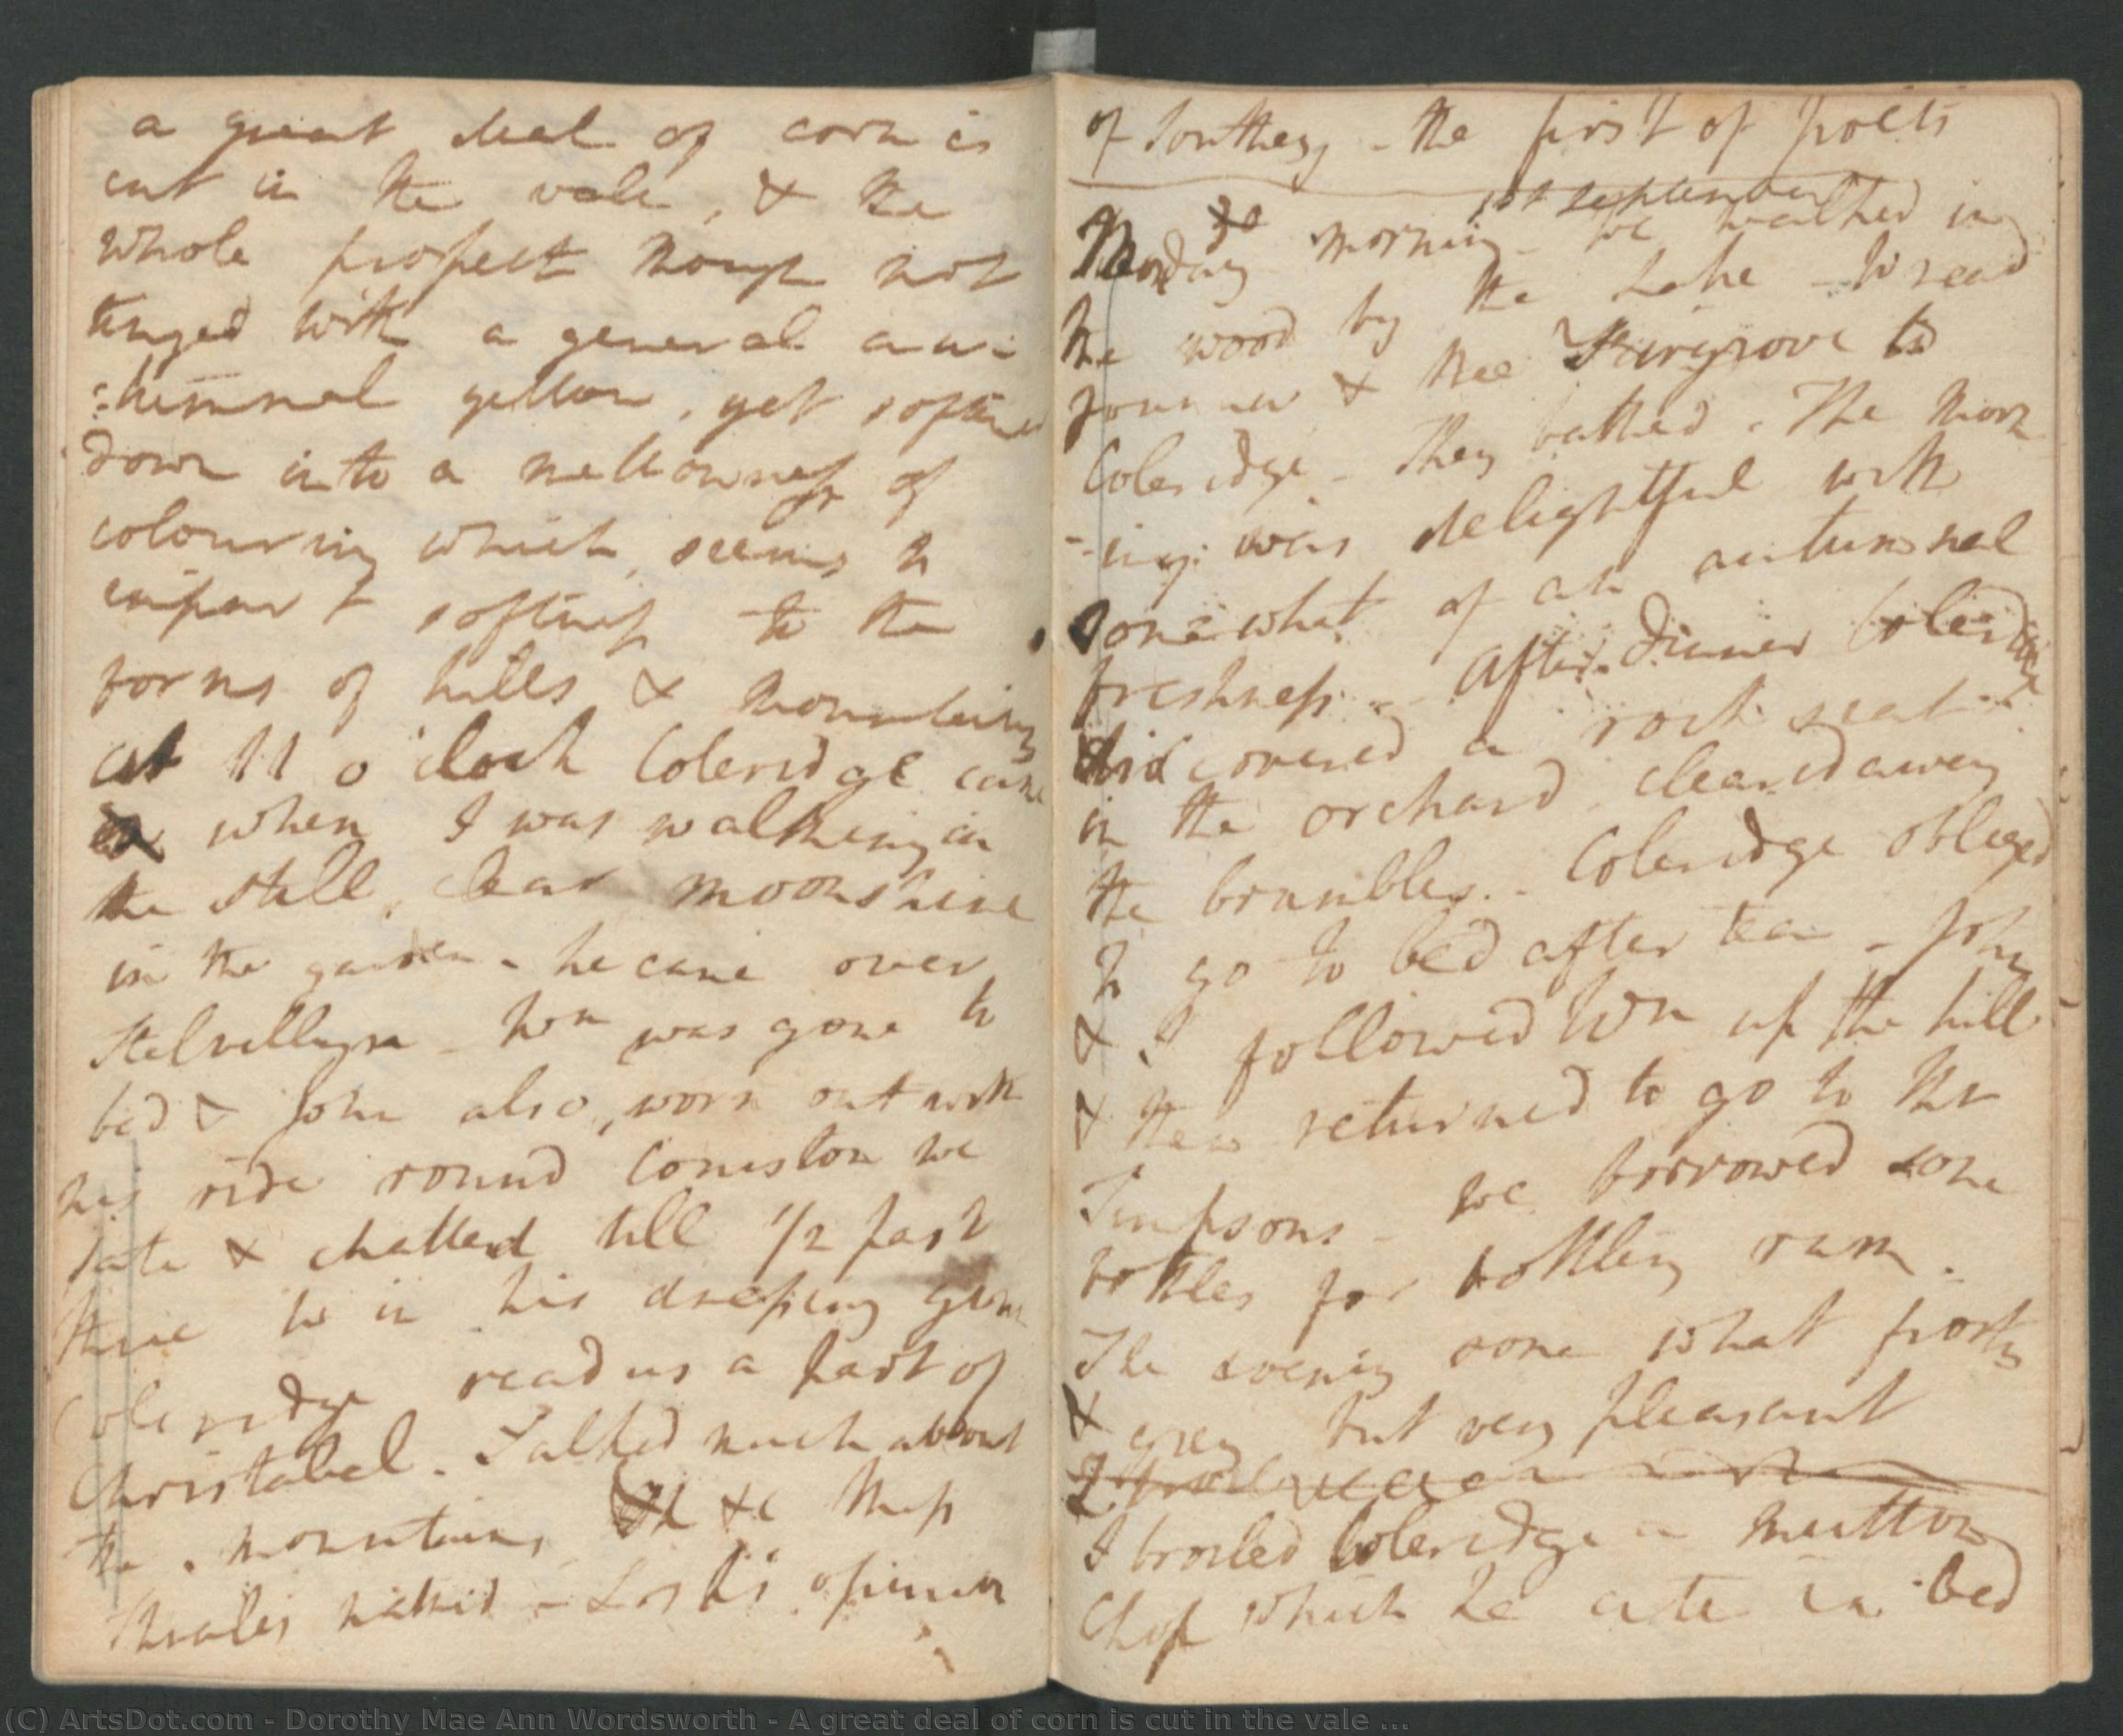 a great deal of corn is
cut in the vale, & the
whole prospect though not
tinged with a general au-
:tumnal yellow, yet softened
down into a mellowness of
colouring which seems to
impart softness to the
forms of hills & mountains
at 11 o'clock Coleridge came
when I was walking in
the still, clear moonshine
in the garden - he came over
Helvellyn - Wm was gone to
bed & John also, worn out with
his ride round Coniston we
sate & chatted till 1/2 past
three W in his dressing gown
Coleridge read us a part of
Christabel. Talked much about
the mountains &c &c Miss
Thrales hatred - Losh's opinion
of Southey - the first of poets
1st September
Monday morning - We walked in
the wood by the Lake - W read
Joanna & the Firgrove to
Coleridge - They bathed. The morn
-ing was delightful with
somewhat of an autumnal
freshness - After dinner Coleridge
discovered a rock seat
in the orchard, cleared away
the brambles. - Coleridge obliged
to go to bed after tea - John
& I followed Wm up the hill
& then returned to go to Mr
Simpsons - We borrowed some
bottles for bottling rum.
The evening some what frosty
& grey but very pleasant
I broiled Coleridge a mutton
Chop which he ate in bed
(C) ArtsDot.com - Dorothy Mae Ann Wordsworth - A great deal of corn is cut in the vale ...